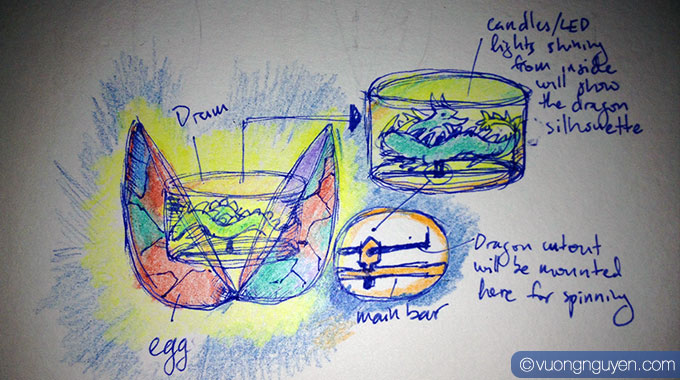 candles/LED
lights shining
from inside
will show
the dragon
silhouette
Drum
Dragon cutout
will be mounted
here for spinning
main bar
egg
©vuongnguyen.com